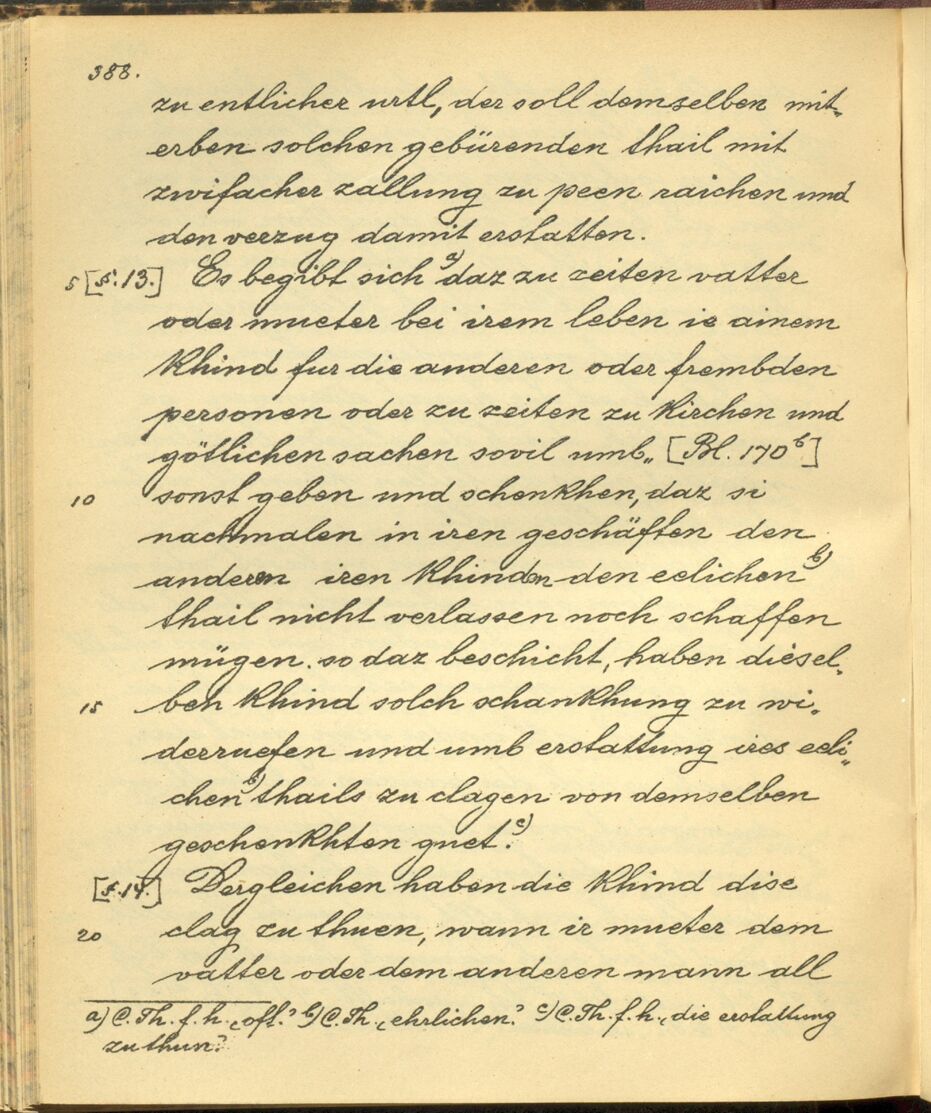 388.
zu entlicher urtl, der soll demselben mit„
erben solchen gebürenden thail mit
zwifacher zallung zu peen raichen und
den verzug damit erstatten.
5 [§. 13.] Es begibt sich a) daz zu zeiten vatter
oder mueter bei irem leben ie ainem
khind fur die anderen oder frembden
personen oder zu zeiten zu kirchen und
götlichen sachen sovil umb„ [Bl. 170 b]
10 sonst geben und schenkhen, daz si
nachmalen in iren geschäften den
anderen iren khinden den eelichen b)
thail nicht verlassen noch schaffen
mügen. so daz beschicht, haben diesel„
15 ben khind solch schankhung zu wi„
derruefen und umb erstattung ires eeli„
chen b) thails zu clagen von demselben
geschenkhten guet. c)
[§. 14.] Dergleichen haben die khind dise
20 clag zu thuen, wann ir mueter dem
vatter oder dem anderen mann all
a) C. Th. f. h. „oft.“ b) C. Th. „ehrlichen.“ c) C. Th. f. h. „die erstattung
zu thun.“